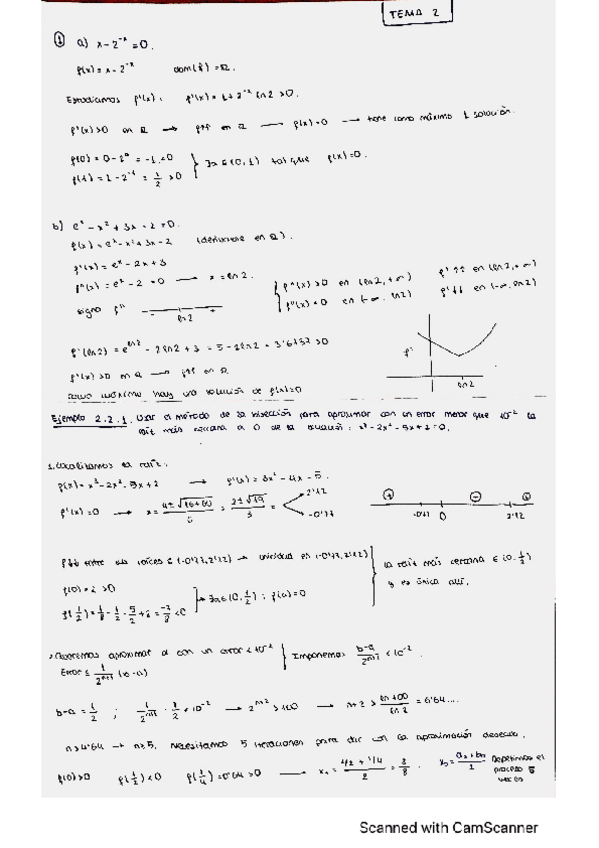 TEMA 2
① a) x - 2^-x = 0.
f(x) = x - 2^-x dom(f) = ℝ.
Estudiamos f'(x): f'(x) = 1 + 2^-x ln 2 > 0.
f'(x) > 0 en ℝ → f↑↑ en ℝ → f(x) = 0 → tiene como máximo 1 solución.
f(0) = 0 - 2^0 = -1 < 0
f(1) = 1 - 2^-1 = 1/2 > 0 } ∃α ∈ (0, 1) tal que f(x) = 0.
b) e^x - x^2 + 3x - 2 = 0.
f(x) = e^x - x^2 + 3x - 2 (derivable en ℝ).
f'(x) = e^x - 2x + 3
f''(x) = e^x - 2 = 0 → x = ln 2. { f''(x) > 0 en (ln 2, +∞) f' ↑↑ en (ln 2, +∞)
signo f'' - + ln 2 f''(x) < 0 en (-∞, ln 2) f' ↓↓ en (-∞, ln 2)
f'(ln 2) = e^ln2 - 2 ln 2 + 3 = 5 - 2 ln 2 = 3'6137 > 0 f' ln 2
f'(x) > 0 en ℝ → f↑↑ en ℝ
como máximo hay una solución de f(x) = 0
Ejemplo 2.2.1. Usar el método de la bisección para aproximar con un error menor que 10^-2 la
raíz más cercana a 0 de la ecuación: x^3 - 2x^2 - 5x + 2 = 0.
1. Localizamos la raíz.
f(x) = x^3 - 2x^2 - 5x + 2 → f'(x) = 3x^2 - 4x - 5.
f'(x) = 0 → x = (4 ± √(16+60))/6 = (2 ± √19)/3 = 2'12 -0'77 + - + -0'77 0 2'12
f↓↓ entre sus raíces ∈ (-0'77, 2'12) → unicidad en (-0'77, 2'12)
f(0) = 2 > 0 la raíz más cercana ∈ (0, 1/2)
f(1/2) = 1/8 - 1/2 - 5/2 + 2 = -7/8 < 0 → ∃α ∈ (0, 1/2) : f(α) = 0 y es única allí.
2. Queremos aproximar α con un error < 10^-2 { Imponemos (b-a)/2^(n+1) < 10^-2
Error ≤ 1/2^(n+1) (b-a)
b-a = 1/2 ; 1/2^(n+1) · 1/2 < 10^-2 → 2^(n+2) > 100 → n+2 > ln 100/ln 2 = 6'64....
n > 4'64 → n ≥ 5. Necesitamos 5 iteraciones para dar con la aproximación deseada.
f(0) > 0 f(1/2) < 0 f(1/4) = 0'64 > 0 → x₁ = (1/2 + 1/4)/2 = 3/8. Repetimos el
proceso 5
veces
Scanned with CamScanner